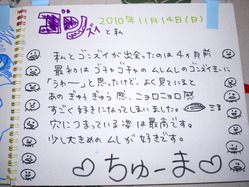 ゴンズイと私 2010年11月14日(日)
私とゴンズイが出会ったのは4ヵ月前
最初は ゴチャゴチャの ムレムレの ゴンズイ玉に
「うわー」と思ったけど、よく見ていると
あの ぎゅうぎゅう感、ニョロニョロ感
すごく好きになってしまいました。
穴につまっている姿は最高です。
少し大きめのムレが好きです。
ちゅーま